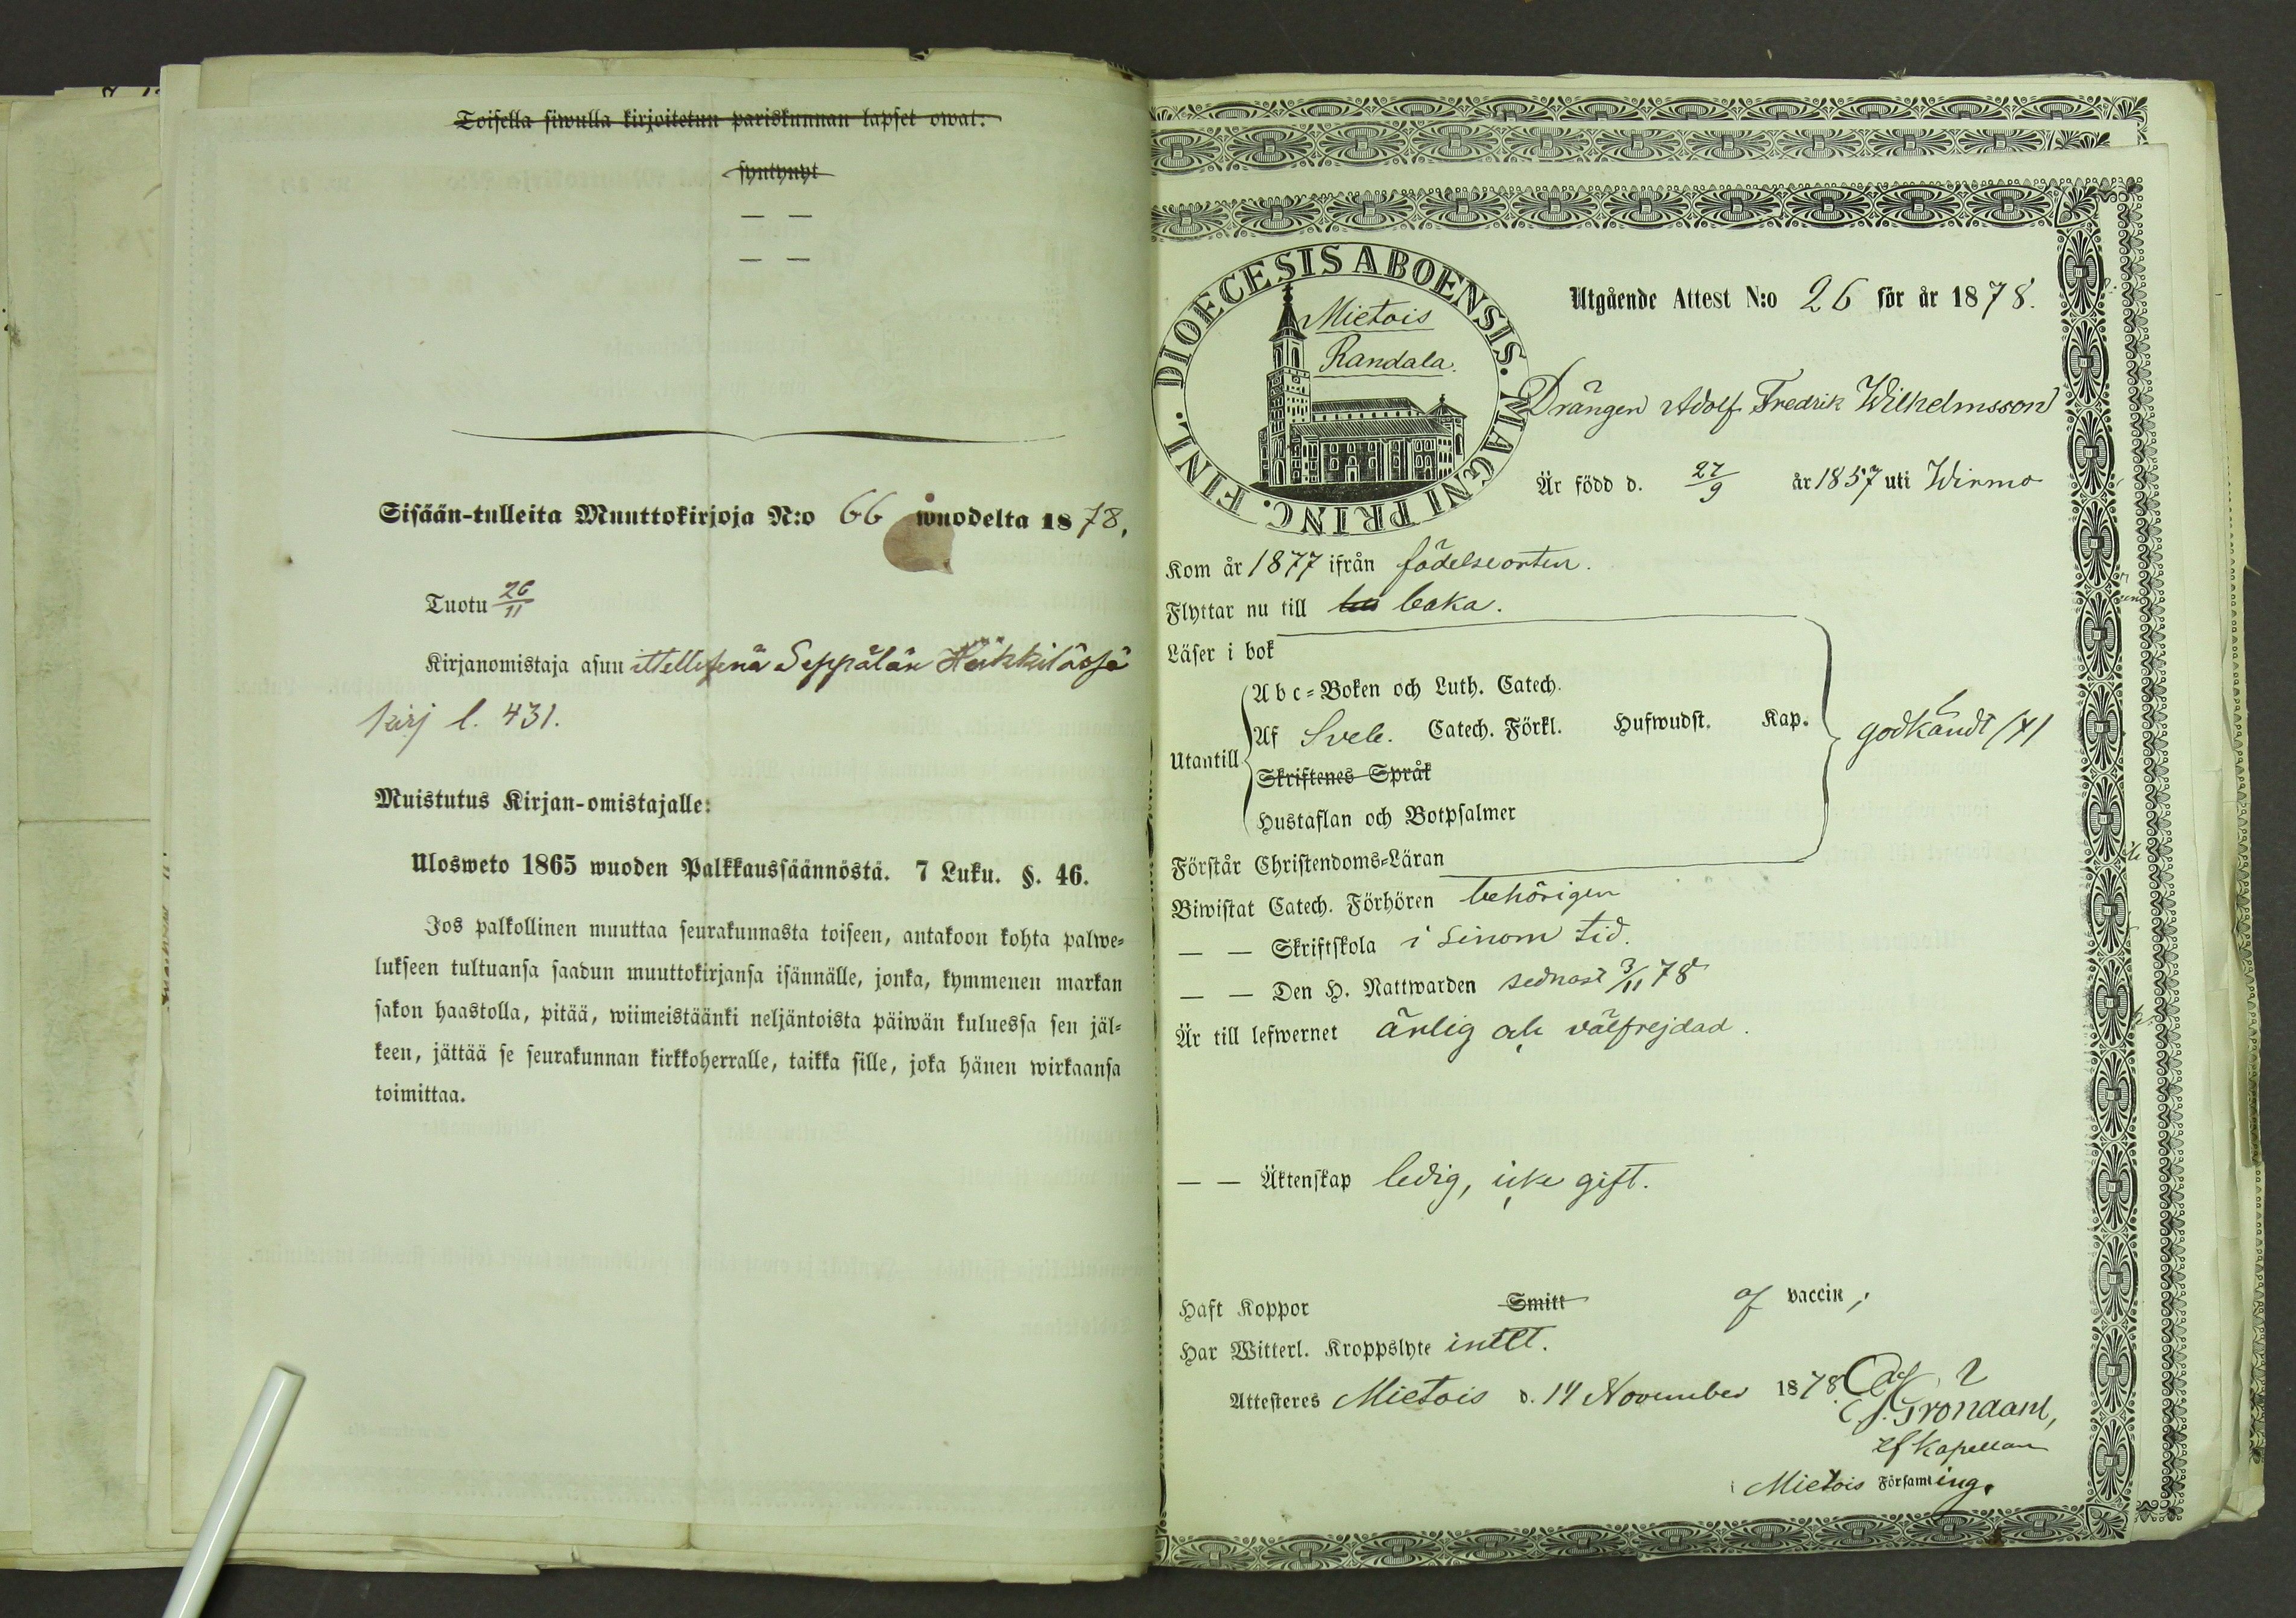 Toisella siwulla kirjoitetun pariskunnan lapset owat:
syntynyt
— —
— —
Sisään-tulleita Muuttokirjoja N:o 66 wuodelta 1878,
Tuotu 26/11
Kirjanomistaja asuu Seppälän Heikkilässä
kirj l. 431.
Muistutus Kirjan-omistajalle:
Ulosweto 1865 wuoden Palkkaussäännöstä. 7 Luku. §. 46.
Jos palkollinen muuttaa seurakunnasta toiseen, antakoon kohta palwe-
lukseen tultuansa saadun muuttokirjansa isännälle, jonka, kymmenen markan
sakon haastolla, pitää, wiimeistäänki neljäntoista päiwän kuluessa sen jäl-
keen, jättää se seurakunnan kirkkoherralle, taikka sille, joka hänen wirkaansa
toimittaa.
DIOECESIS ABOENSIS. MAGNI PRINC. FINL.
Mietois
Randala.
Utgående Attest N:o 26 för år 1878.
Drängen Adolf Fredrik Wilhelmsson
Är född d. 27/9 år 1857 uti Wirmo
Kom år 1877 ifrån födelseorten.
Flyttar nu till baka.
Läser i bok
Abc-Boken och Luth. Catech.
Utantill
Af Sveb. Catech. Förkl. Hufwudst. Kap.
godkändt /4/
Skriftenes Språk
Hustaflan och Botpsalmer
Förstår Christendoms-Läran
Biwistat Catech. Förhören behörigen
— — Skriftskola i sinom tid.
— — Den H. Nattwarden sednast 3/11 78
Är till lefwernet ärlig och välfrejdad.
— — Äktenskap ledig, icke gift.
Haft Koppor Smitt af vaccin;
Har Witterl. Kroppslyte intet.
Attesteres Mietois d. 14 November 1878.
Gröndahl,
Kapellan
Mietois Församling.